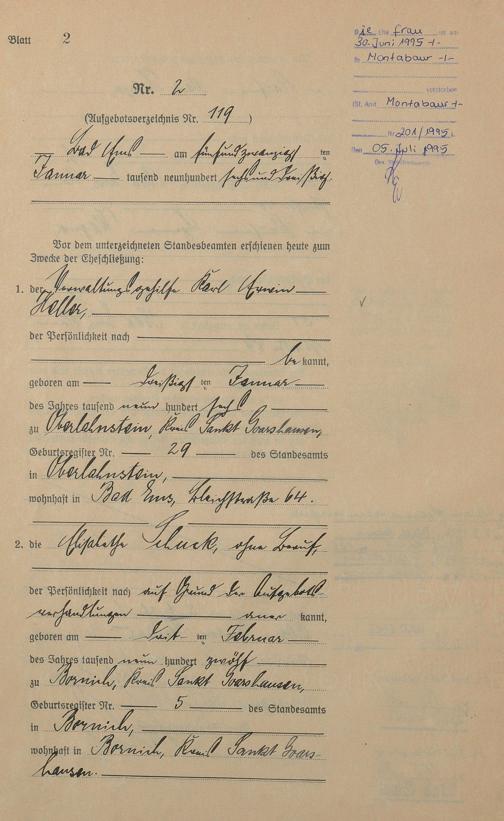 Blatt 2
Die Ehefrau ist am
30. Juni 1995 -/-
in Montabaur -/-
verstorben
(St. Amt Montabaur -/-
Nr. 201/1995)
Den 05. Juli 1995
Der Standesbeamte
Nr. 2
(Aufgebotsverzeichnis Nr. 119)
Bad Ems am fünfundzwanzigsten
Januar tausend neunhundert sechsunddreißig.
Vor dem unterzeichneten Standesbeamten erschienen heute zum
Zwecke der Eheschließung:
1. der Verwaltungsgehilfe Karl Erwin
Heller,
der Persönlichkeit nach
bekannt,
geboren am dreißigsten Januar
des Jahres tausend neun hundert sechs
zu Oberlahnstein, Kreis Sankt Goarshausen,
Geburtsregister Nr. 29 des Standesamts
in Oberlahnstein,
wohnhaft in Bad Ems, Bleichstraße 64.
2. die Elisabethe Schuck, ohne Beruf,
der Persönlichkeit nach auf Grund der Aufgebots-
verhandlungen anerkannt,
geboren am dritten Februar
des Jahres tausend neun hundert zwölf
zu Bornich, Kreis Sankt Goarshausen,
Geburtsregister Nr. 5 des Standesamts
in Bornich,
wohnhaft in Bornich, Kreis Sankt Goars-
hausen.